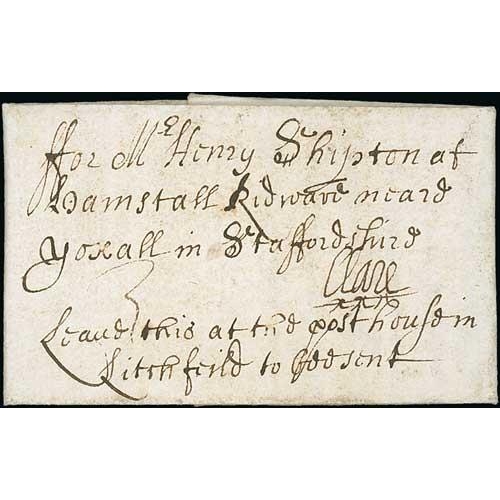 ffor Mr Henry Shipton at
Hamstall Ridware neare
Yoxall in Staffordshire
Clare
Leave this at the post house in
Litchfeild to bee sent